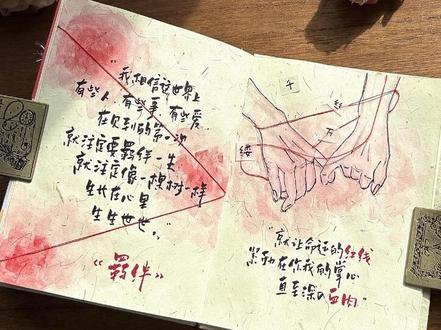 “我相信这世界上
有些人 有些事 有些爱
在见到的第一次
就注定要羁绊一生
就注定像一棵树一样
生长在心里
生生世世。”
《羁绊》
千
红
万
缕
“就让命运的红线
紧勒在你我的掌心
直至深入血肉”